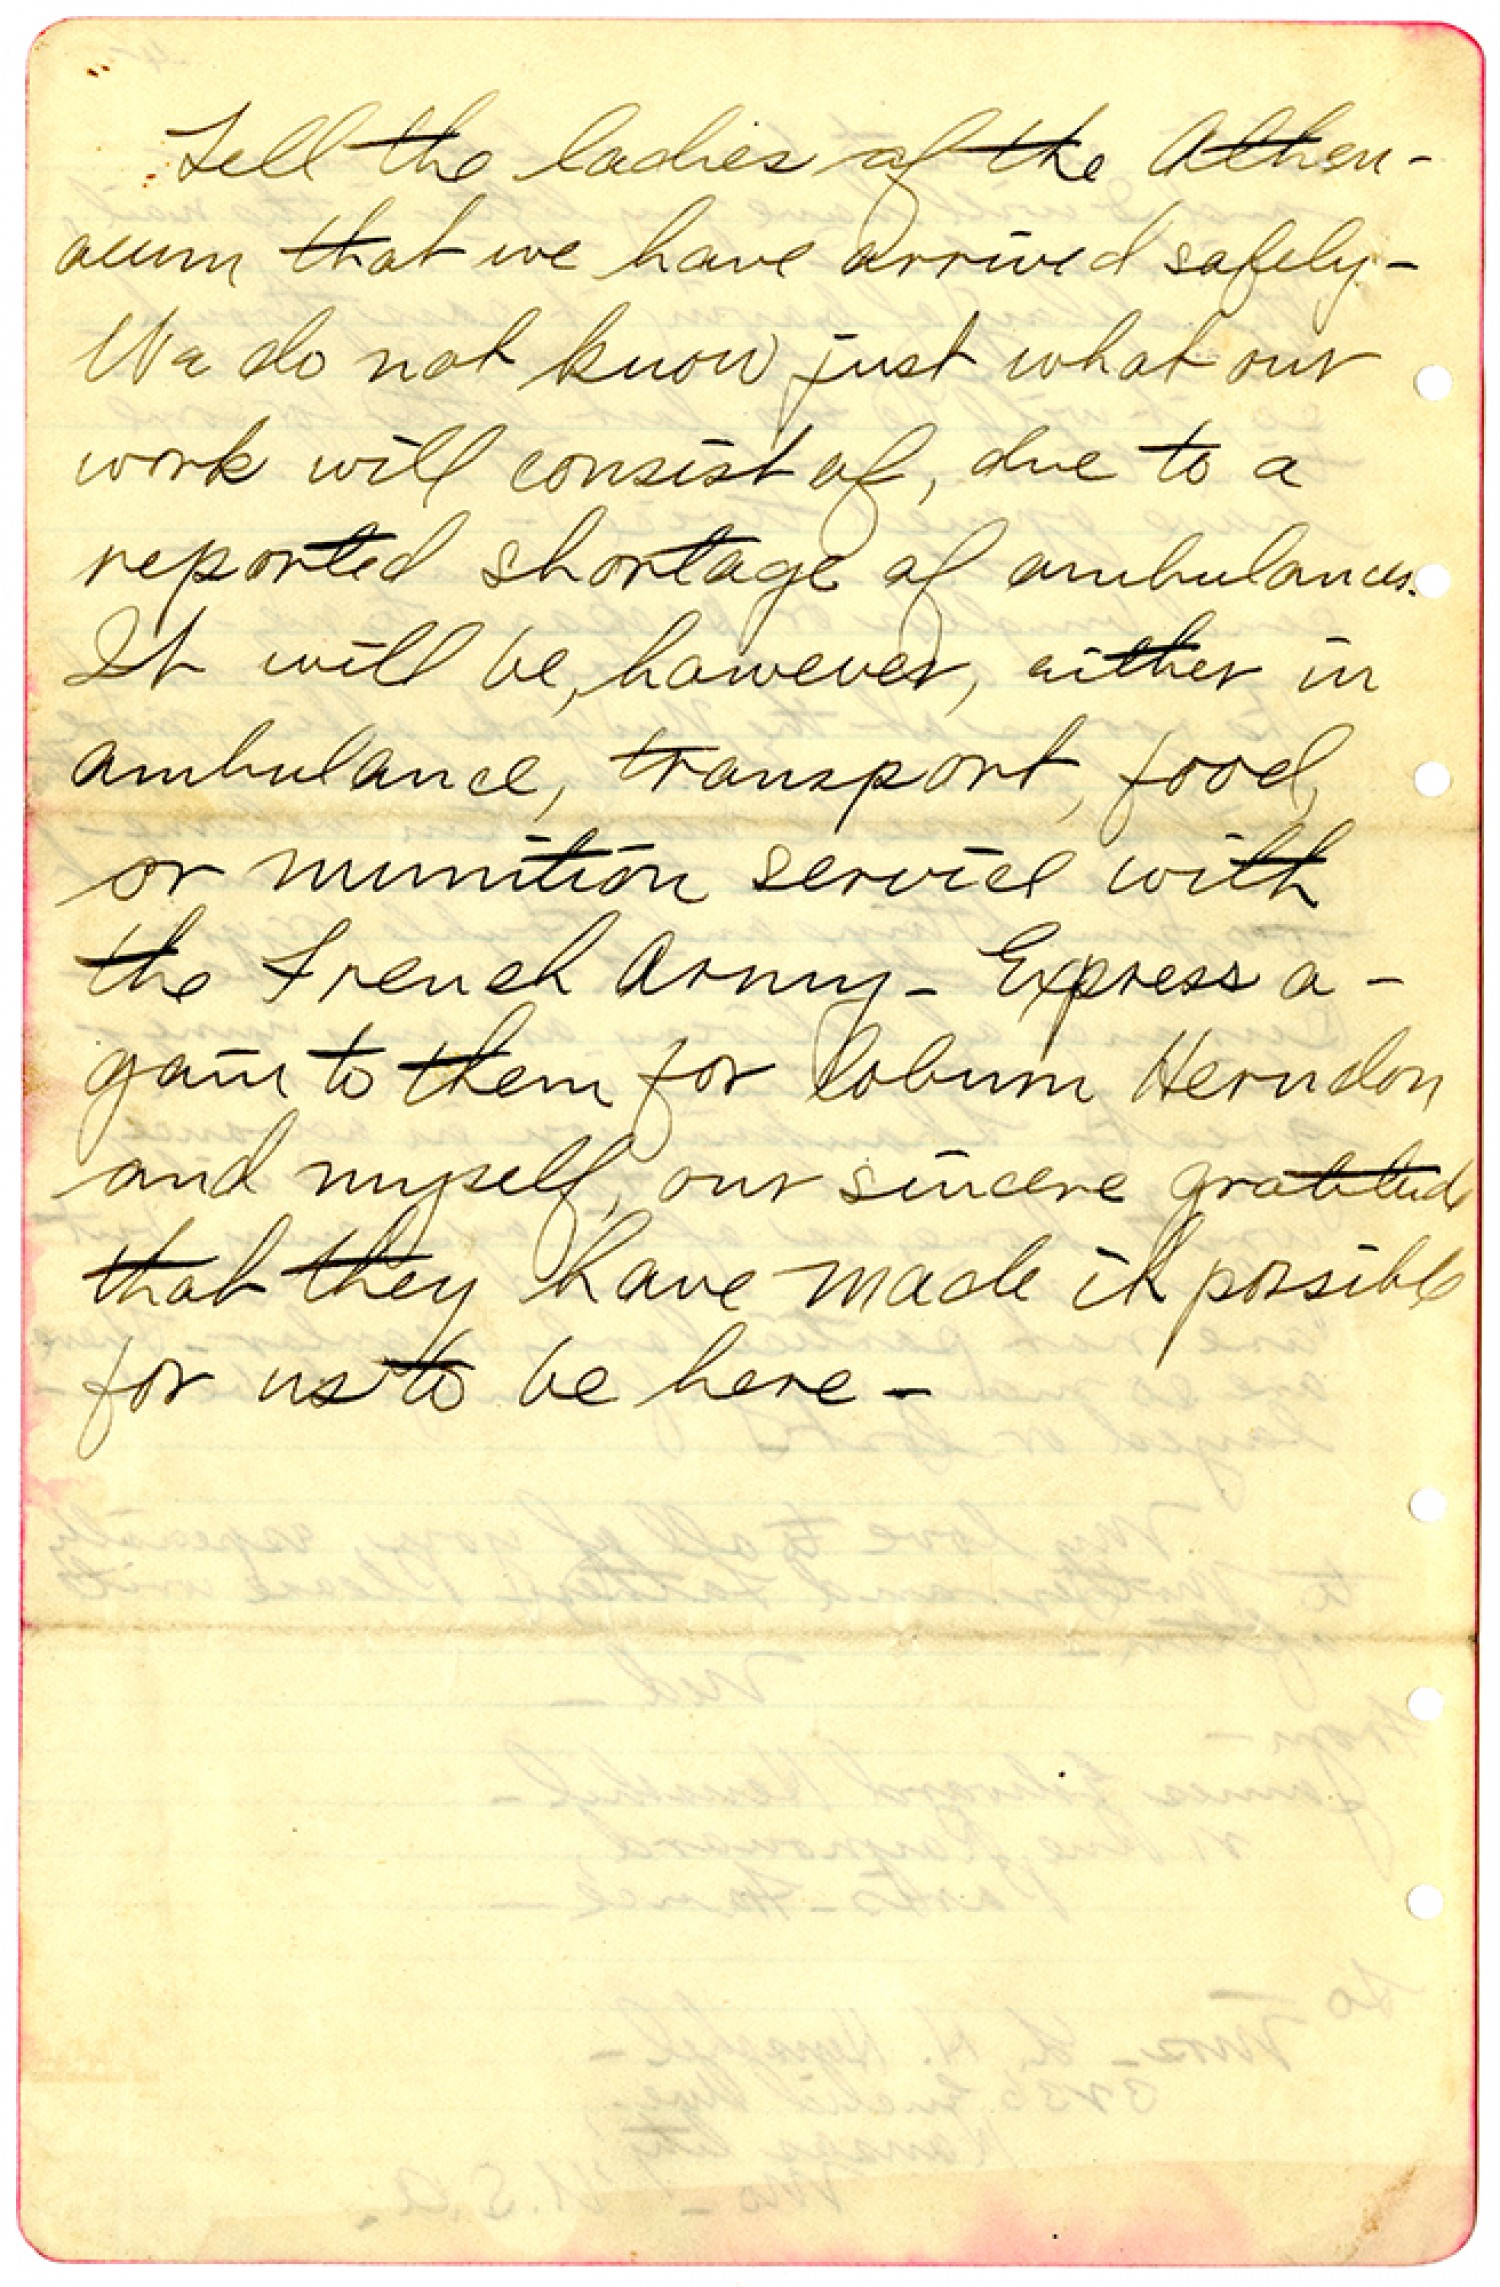 Tell the ladies of the Athen-
aeum that we have arrived safely -
We do not know just what our
work will consist of, due to a
reported shortage of ambulances.
It will be, however, either in
ambulance, transport, food,
or munition service with
the French Army - Express a-
gain to them for Coburn Herndon
and myself, our sincere gratitude
that they have made it possible
for us to be here -